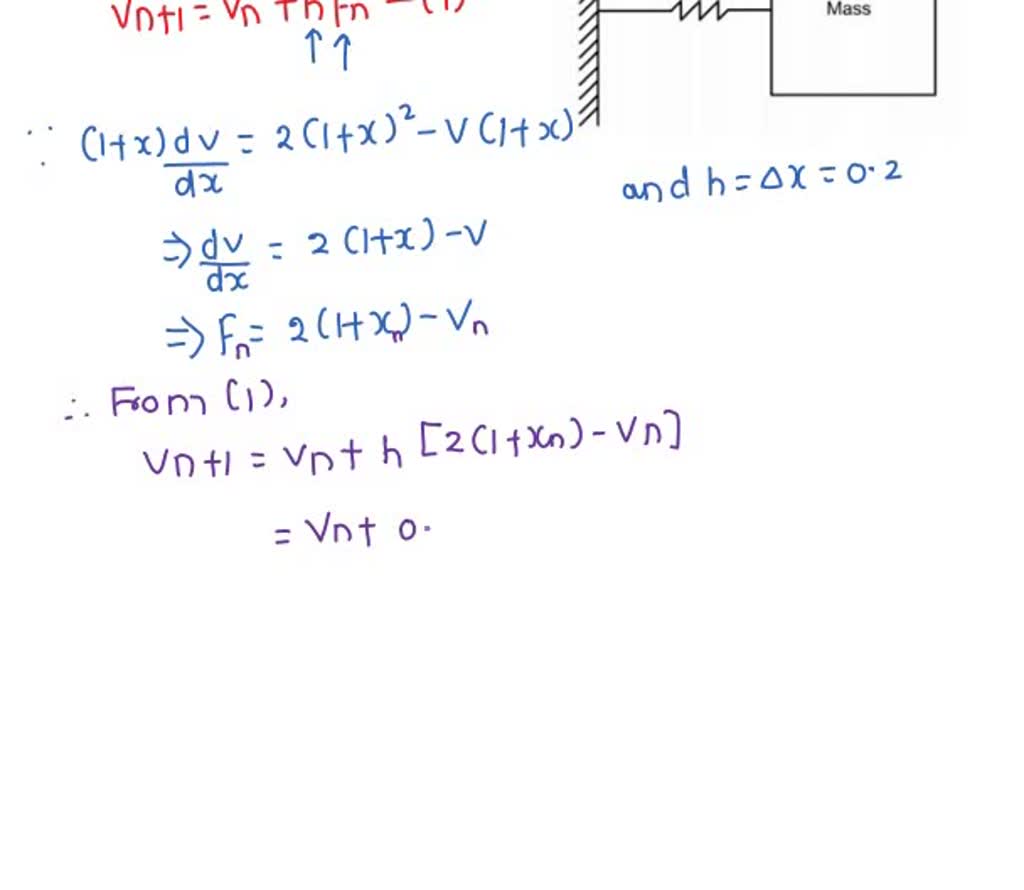 Vn+1 = Vn + h Fn - (1)
Mass
∵ (1+x) dv/dx = 2(1+x)² - V(1+x)
and h = Δx = 0.2
⇒ dv/dx = 2(1+x) - V
⇒ Fn = 2(1+xn) - Vn
∴ From (1),
Vn+1 = Vn + h [2(1+xn) - Vn]
= Vn + 0.